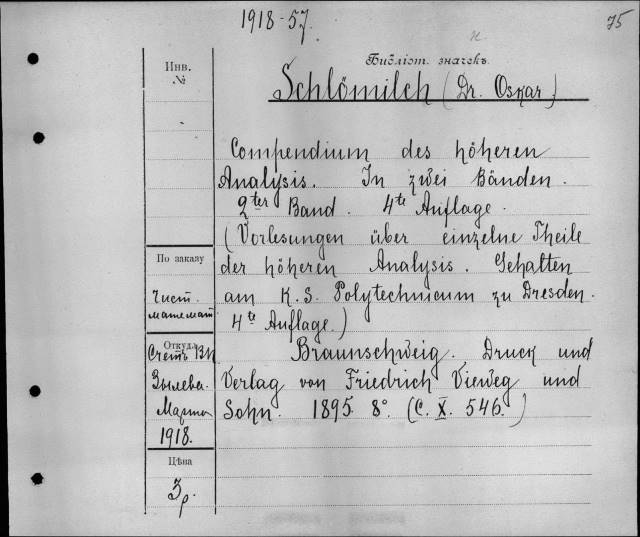 1918-57.
75
Библіот. значекъ
Инв.
№
Schlömilch (Dr. Oskar)
Compendium des höheren
Analysis. In zwei Bänden.
2ter Band. 4te Auflage.
(Vorlesungen über einzelne Theile
der höheren Analysis. Gehalten
am K. S. Polytechnicum zu Dresden.
4te Auflage.)
Braunschweig. Druck und
Verlag von Friedrich Vieweg und
Sohn. 1895. 8°. (C. X. 546.)
По заказу
Чист.
математ.
Откуда
Счетъ
Марта
1918.
Цѣна
3 р.